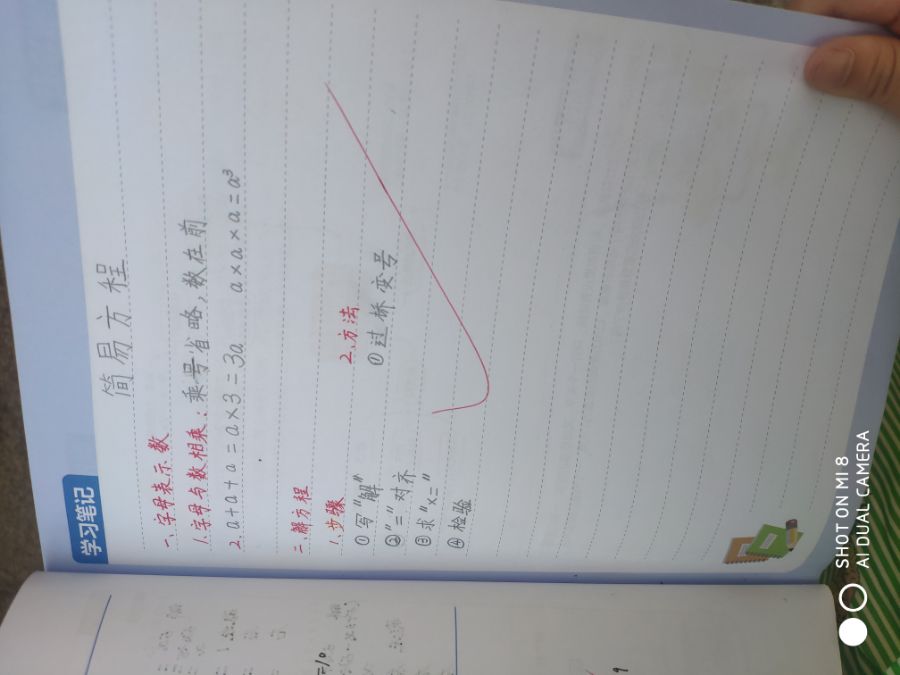 学习笔记
简易方程
一、字母表示数
1.字母与数相乘：乘号省略，数在前
2. a+a+a=a×3=3a a×a×a=a³
二、解方程
1、步骤
①写“解”
②“=”对齐
③求“x=”
④检验
2、方法
①过桥变号
SHOT ON MI 8
AI DUAL CAMERA